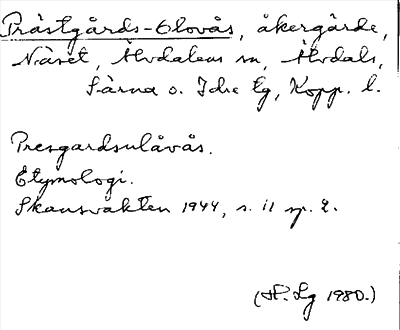 Prästgårds-Olovås, åkergärde,
Näset, Älvdalens sn, Älvdals,
Särna o. Idre tg, Kopp. l.
Presgardsulåvås.
Etymologi.
Skansvakten 1944, s. 11 sp. 2.
(H. Lg 1980.)